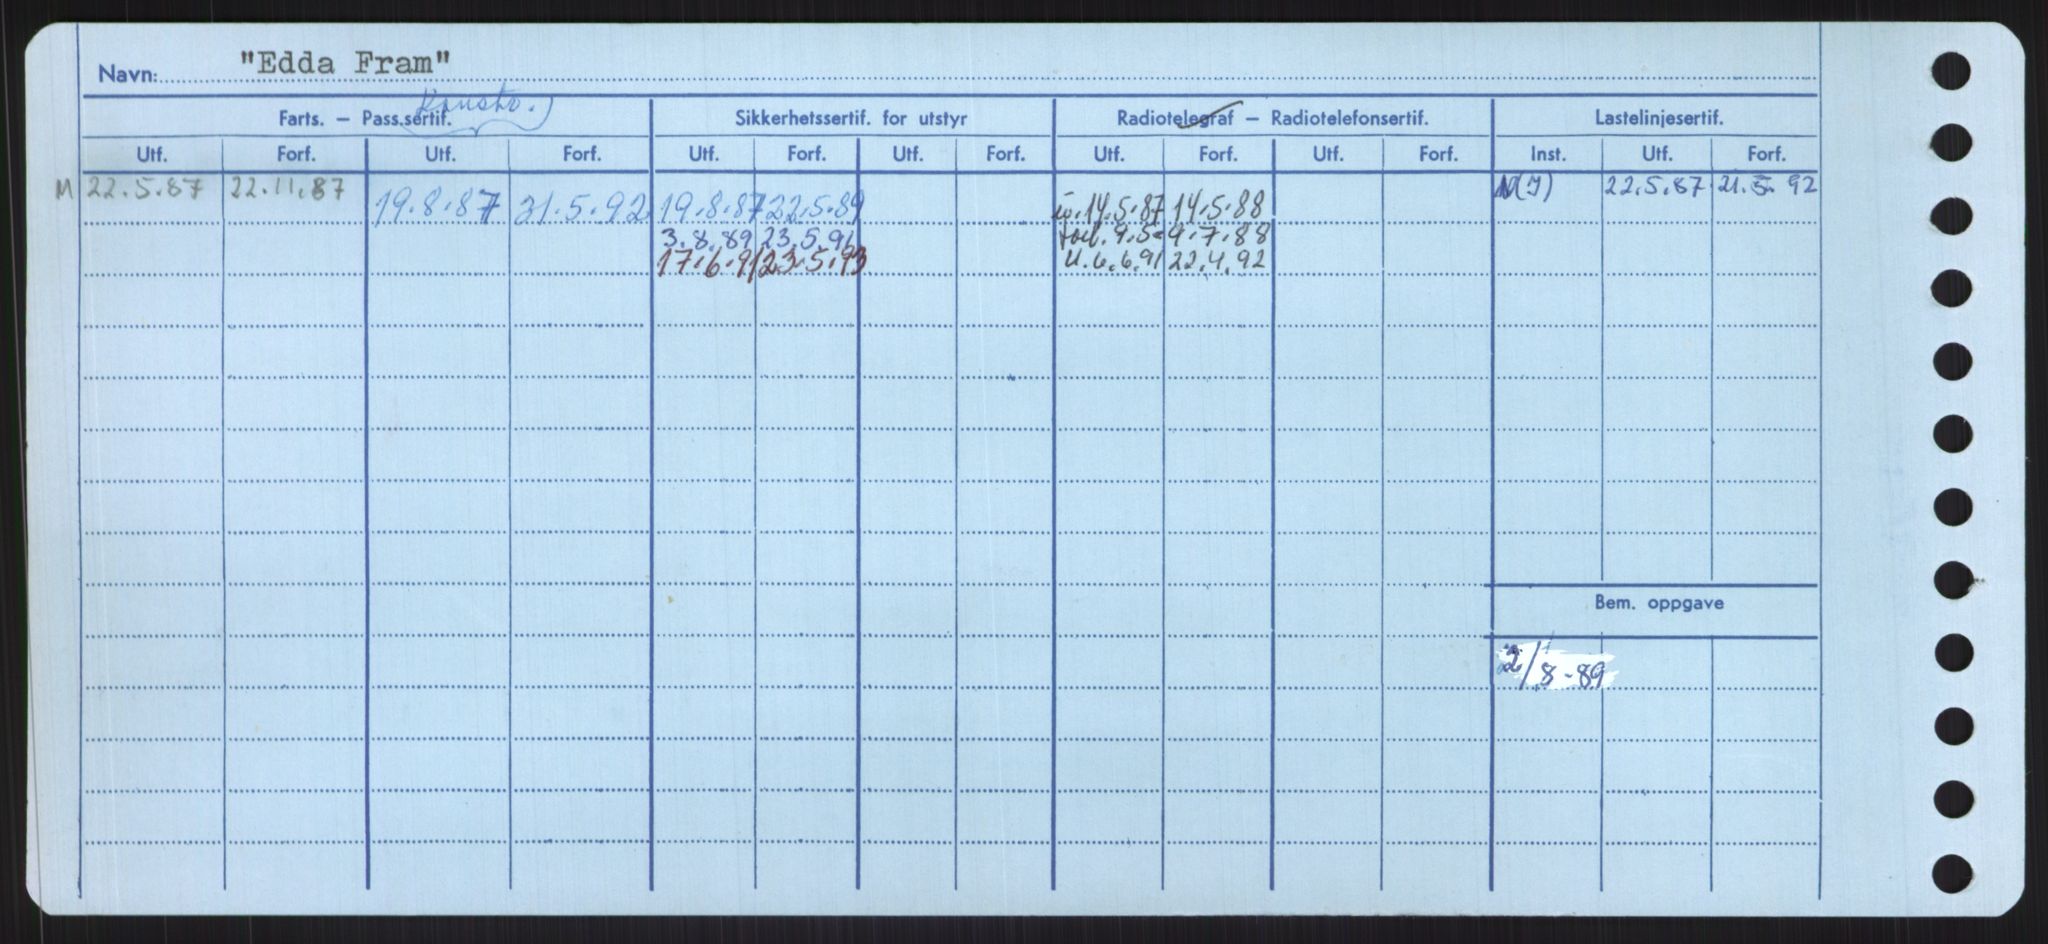 Navn: "Edda Fram"
Konstr.
Farts. – Pass.sertif. Sikkerhetssertif. for utstyr Radiotelegraf – Radiotelefonsertif. Lastelinjesertif.
Utf. Forf. Utf. Forf. Utf. Forf. Utf. Forf. Utf. Forf. Utf. Forf. Inst. Utf. Forf.
M 22.5.87 22.11.87 19.8.87 31.5.92 19.8.87 22.5.89 14.5.87 14.5.88 N(I) 22.5.87 21.5.92
3.8.89 23.5.91 9.5 9.7.88
17.6.91 23.5.93 U.6.6.91 22.4.92
Bem. oppgave
2/8-89